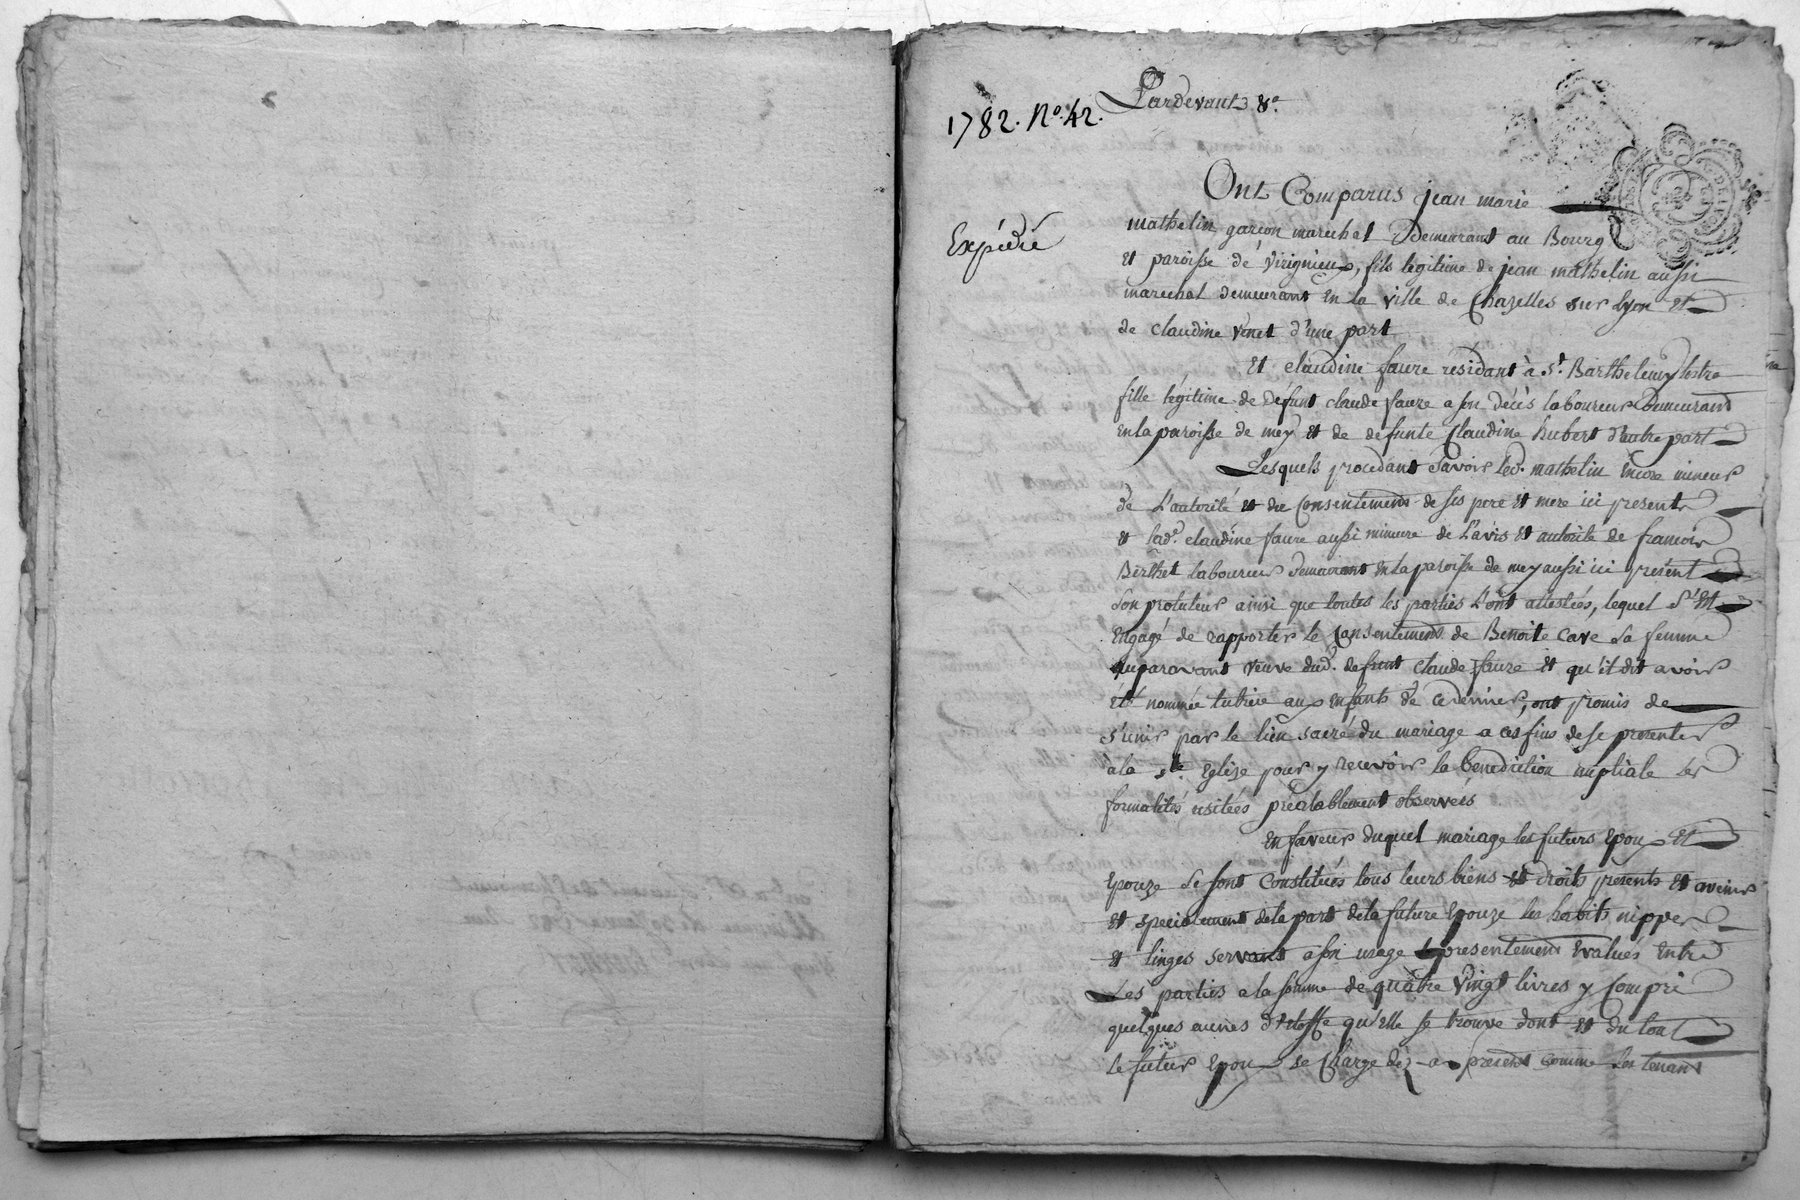 1782. N.º 42.
Pardevant &.ª
Expédié
Ont Comparus jean marie
mathelin garcon marechal Demeurant au Bourg
et paroisse dé Virignieux, fils legitime de jean mathelin aussi
marechal demeurant En la ville de Chazelles sur lyon et
de claudine Vénet d'une part
Et claudine faure résidant à S.t Barthelemy lestra
fille légitime de défunt claude faure a son décès laboureur Demeurant
en la paroisse de mey et de defunte Claudine hubert d'autre part
Lesquels procédant savoir led. mathelin Encore mineur
de L'autorité et du Consentement de ses pere et mere ici presents
et lad.e claudine faure aussi mineure de L'avis et autorité de francois
Berthet laboureur demeurant en la paroisse de mey aussi ici présent
son protuteur ainsi que toutes les parties L'ont attestées, lequel s'est
Engagé de rapporter le Consentement de Benoite cave sa femme
auparavant veuve dud. defunt claude faure et qu'il dit avoir
été nommée tutrice aux enfants de ce dernier, ont promis de
s'unir par le lien sacré du mariage a ces fins de se presenter
a la s.te Eglise pour y recevoir la benediction nuptiale les
formalités usitées préalablement observées
En faveur duquel mariage les futurs Epoux Et
Epouze se sont Constitués tous leurs biens et droits presents et avenir
et specialement de la part de la future Epouze les habits nippes
et linges servant a son usage presentement Evalués Entre
Les parties a la somme de quatre Vingt livres y Compri
quelques aunes d'etoffe qu'elle se trouve dont et du tout
le futur Epoux se Charge dez-a-présent comme les tenant